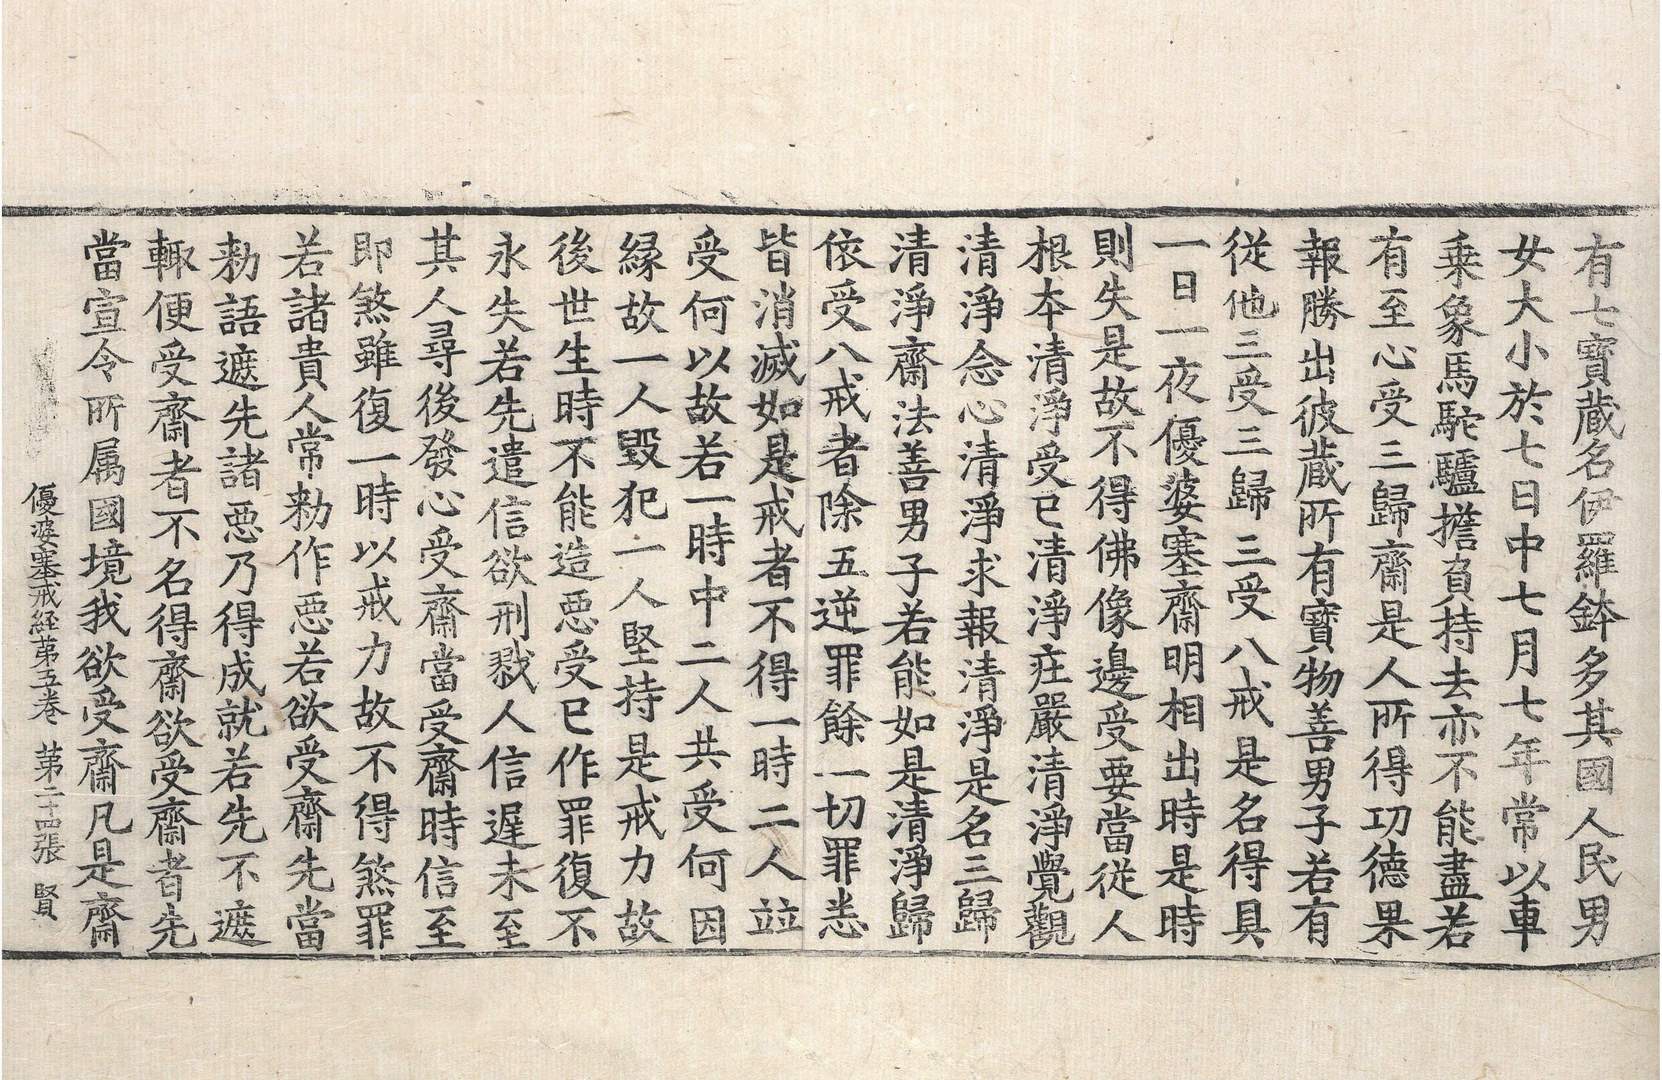 有七寶蔵名伊羅鉢多其國人民男
女大小於七日中七月七年常以車
乗象馬駝驢擔負持去亦不能盡若
有至心受三歸齋是人所得功德果
報勝出彼蔵所有寶物善男子若有
従他三受三歸三受八戒是名得具
一日一夜優婆塞齋明相出時是時
則失是故不得佛像邊受要當従人
根本清淨受已清淨疰嚴清淨覺觀
清淨念心清淨求報清淨是名三歸
清淨齋法善男子若能如是清淨歸
依受八戒者除五逆罪餘一切罪悉
皆消滅如是戒者不得一時二人竝
受何以故若一時中二人共受何因
縁故一人毀犯一人堅持是戒力故
後世生時不能造惡受已作罪復不
永失若先遣信欲刑戮人信遅未至
其人尋後發心受齋當受齋時信至
即煞雖復一時以戒力故不得煞罪
若諸貴人常勑作惡若欲受齋先當
勑語遮先諸惡乃得成就若先不遮
輙便受齋者不名得齋欲受齋者先
當宣令所属國境我欲受齋凡是齋
優婆塞戒経苐五巻 苐二十四張 賢